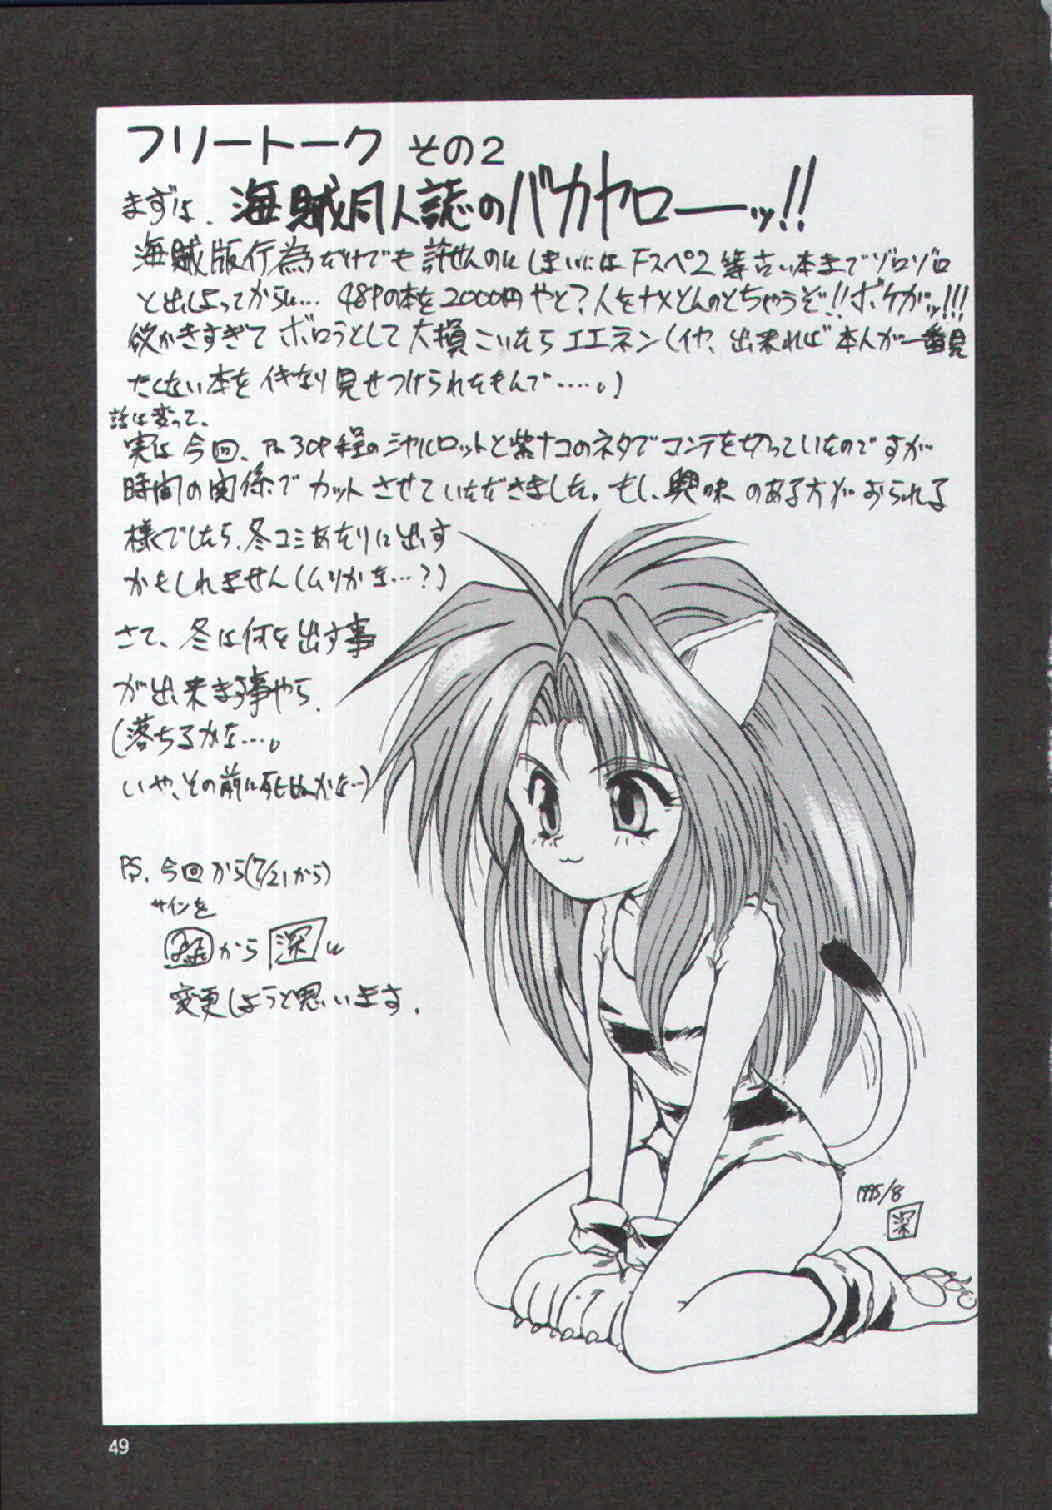 フリートーク その2
まずは、海賊同人誌のバカヤローーッ!!
海賊版行為だけでも許せんのにしまいにはFスペ2等古い本までゾロゾロ
と出しよってからに… 48Pの本を2000円やと?人をナメとんのとちゃうぞ!!ボケがッ!!!
欲かきすぎてボロうとして大損こいたらエエネン(イヤ、出来れば本人が一番見
たくない本をイキなり見せつけられたもんで……。)
話は変って、
実は今回、30P程のシャルロットと紫ナコのネタでコンテを切っていたのですが
時間の関係でカットさせていただきました。もし、興味のある方がおられる
様でしたら、冬コミあたりに出す
かもしれません(ムリかな…?)
さて、冬は何を出す事
が出来ます事やら、
(落ちるかな…。
いや、その前に死ぬかな…)
PS、今回から(7/21から)
サインを
から 深 に
変更しようと思います。
1995/8
深
49